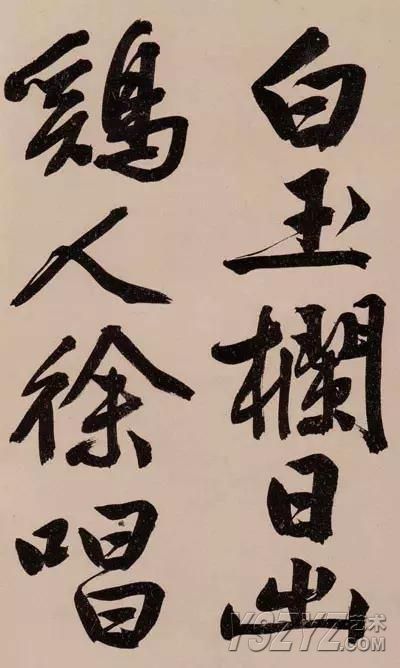 白玉欄日出
鷄人徐唱
YSZYZ艺术